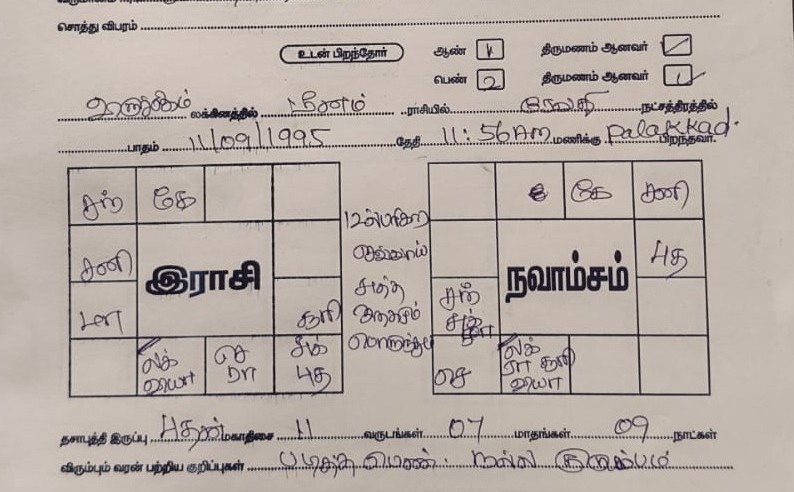 சொத்து விபரம்
உடன் பிறந்தோர் ஆண் 1 திருமணம் ஆனவர்
பெண் 2 திருமணம் ஆனவர் 1
விருச்சிகம் லக்கினத்தில் மீனம் ராசியில் ரேவதி நட்சத்திரத்தில்
பாதம் 11/09/1995 தேதி 11:56 AM மணிக்கு Palakkad. பிறந்தவர்.
சந் கே கே சனி
சனி இராசி நவாம்சம் புத
மா சூரி சந் சுக் மா
லக் வியா செ ரா சுக் புத செ லக் ரா சூரி வியா
தசாபுத்தி இருப்பு புதன் மகாதிசை 11 வருடங்கள் 07 மாதங்கள் 09 நாட்கள்
விரும்பும் வரன் பற்றிய குறிப்புகள் படித்த பெண். நல்ல குடும்பம்